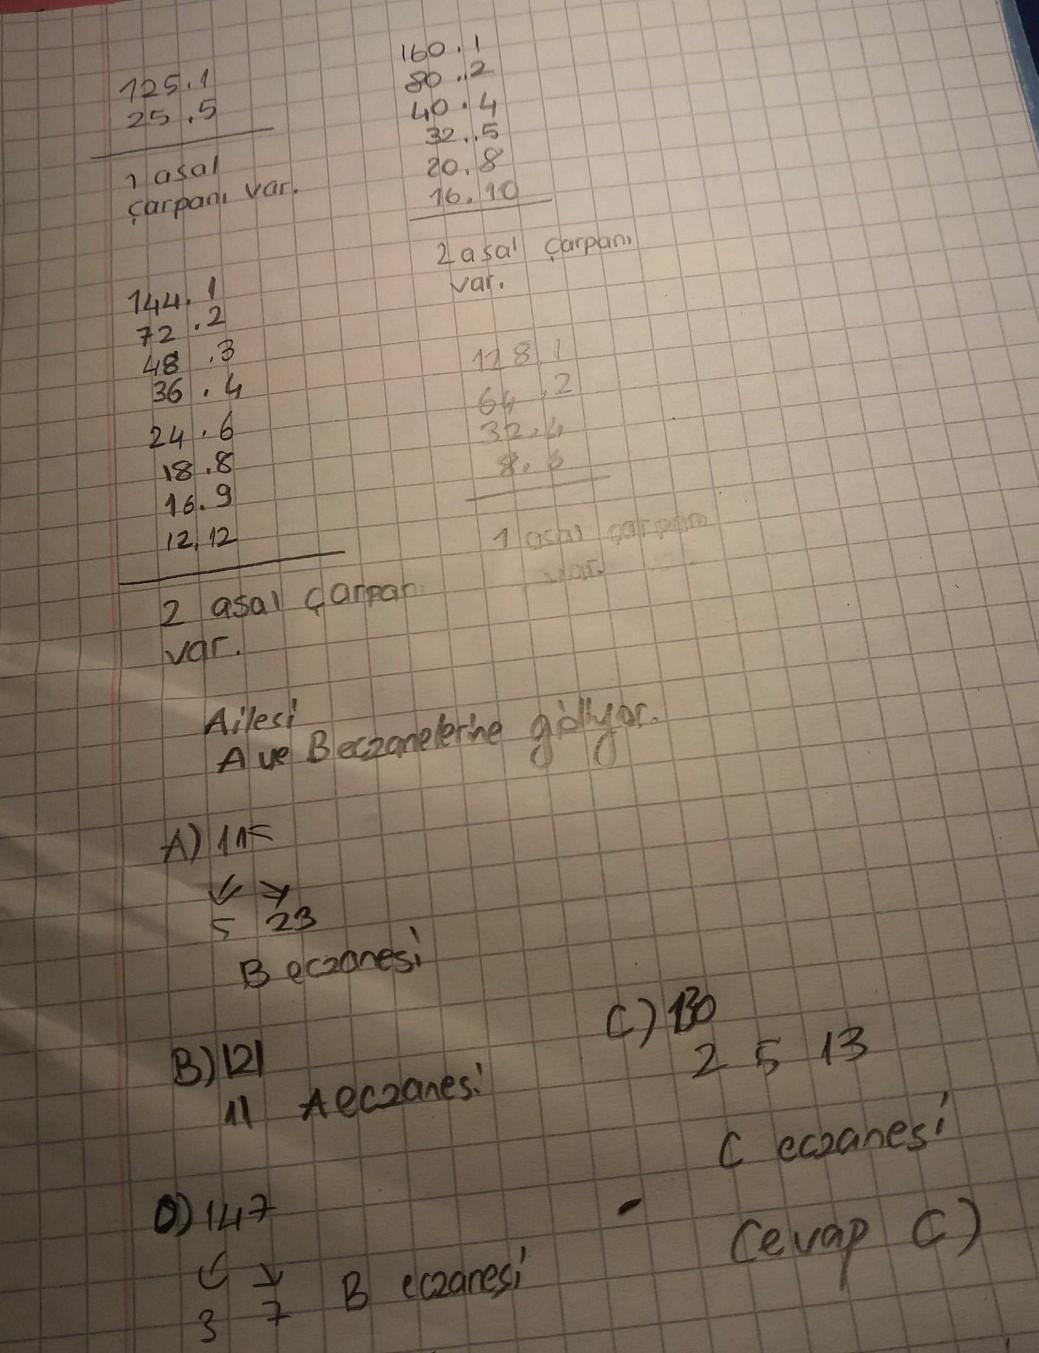 125.1
25.5
1 asal
çarpanı var.
160.1
80.2
40.4
32.5
20.8
16.10
2 asal çarpanı
var.
144.1
72.2
48.3
36.4
24.6
18.8
16.9
12.12
2 asal çarpan
var.
128.1
64.2
32.4
1 asal çarpanı
var.
Ailesi
A ve B eczanelerine gidiyor.
A) 115
5 23
B eczanesi
B) 121
11 A eczanesi
C) 130
2 5 13
C eczanesi
D) 147
3 7 B eczanesi
Cevap C)